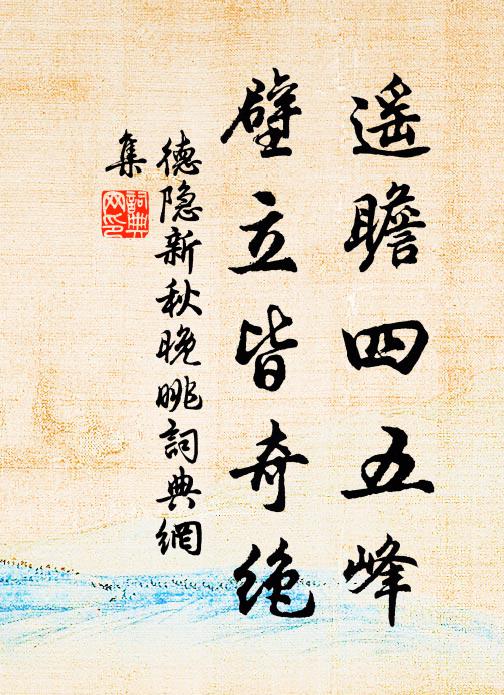 遥瞻四五峰
壁立皆奇绝
德隐新秋晚眺詞典網
集
詞典
网印